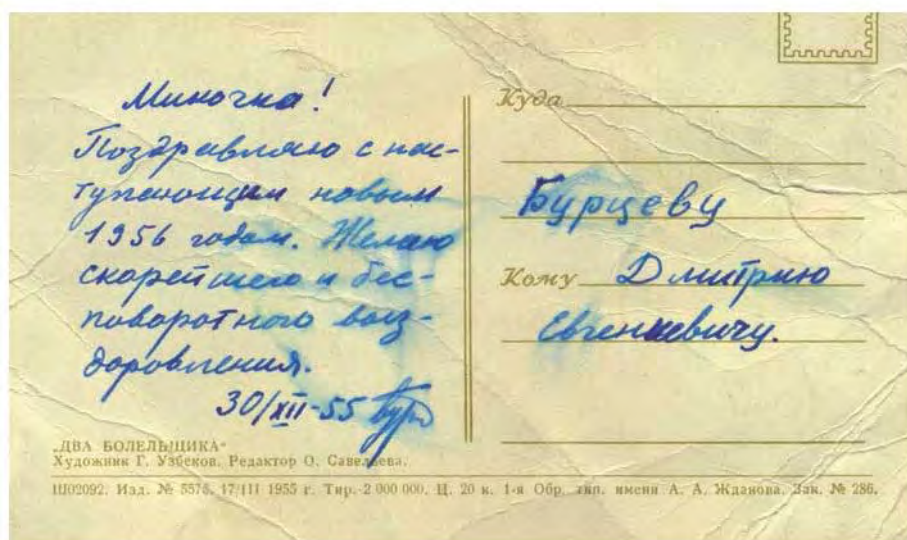 Миночка!
Поздравляю с нас-
тупающим новым
1956 годом. Желаю
скорейшего и бес-
поворотного выз-
доровления.
30/XII-55
Куда
Бурцеву
Кому Дмитрию
Евгениевичу.
„ДВА БОЛЕЛЬЩИКА“
Художник Г. Узбеков. Редактор О. Савельева.
Ш02092. Изд. № 5576. 17/III 1955 г. Тир. 2 000 000. Ц. 20 к. 1-я Обр. тип. имени А. А. Жданова. Зак. № 286.